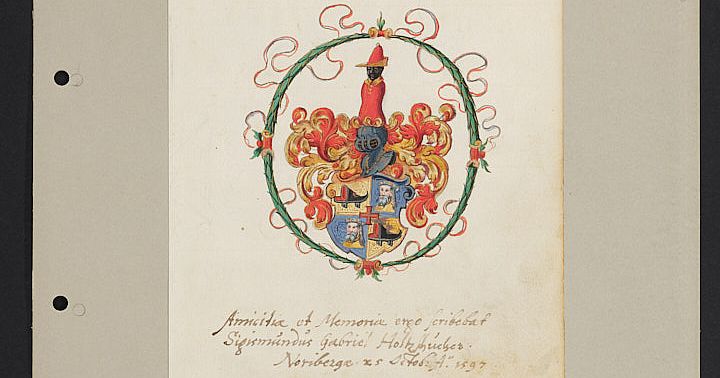 Amicitiæ et Memoriæ ergo scribebat
Sigismundus Gabriel Holtzschucher.
Noribergæ 25 Octob. Aº. 1597